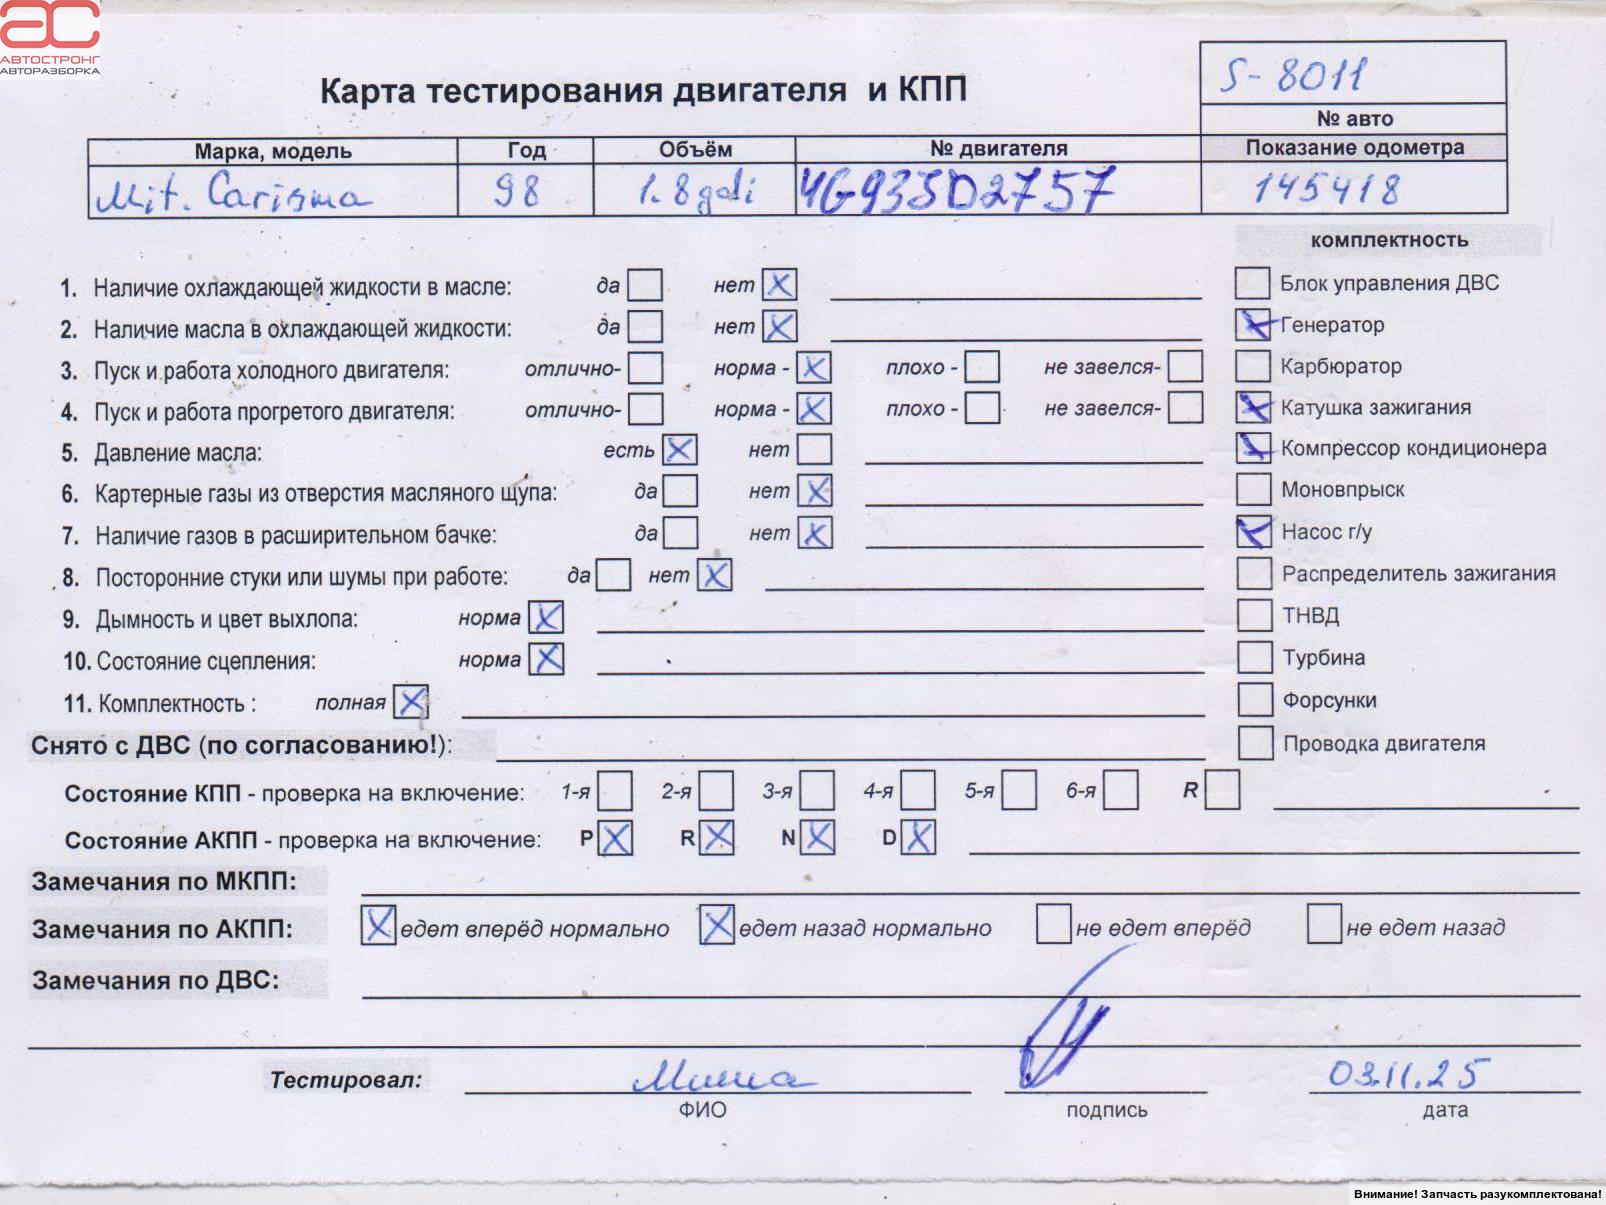 АС
АВТОСТРОНГ
АВТОРАЗБОРКА
S-8011
Карта тестирования двигателя и КПП
№ авто
Марка, модель Год Объём № двигателя Показание одометра
Mit. Carisma 98 1.8 gdi 4G93SD2757 145418
комплектность
1. Наличие охлаждающей жидкости в масле: да нет
Блок управления ДВС
2. Наличие масла в охлаждающей жидкости: да нет
Генератор
3. Пуск и работа холодного двигателя: отлично- норма - плохо - не завелся-
Карбюратор
4. Пуск и работа прогретого двигателя: отлично- норма - плохо - не завелся-
Катушка зажигания
5. Давление масла: есть нет
Компрессор кондиционера
6. Картерные газы из отверстия масляного щупа: да нет
Моновпрыск
7. Наличие газов в расширительном бачке: да нет
Насос г/у
8. Посторонние стуки или шумы при работе: да нет
Распределитель зажигания
9. Дымность и цвет выхлопа: норма
ТНВД
10. Состояние сцепления: норма
Турбина
11. Комплектность : полная
Форсунки
Снято с ДВС (по согласованию!):
Проводка двигателя
Состояние КПП - проверка на включение: 1-я 2-я 3-я 4-я 5-я 6-я R
Состояние АКПП - проверка на включение: P R N D
Замечания по МКПП:
Замечания по АКПП: едет вперёд нормально едет назад нормально не едет вперёд не едет назад
Замечания по ДВС:
Тестировал: Миша 03.11.25
ФИО подпись дата
Внимание! Запчасть разукомплектована!